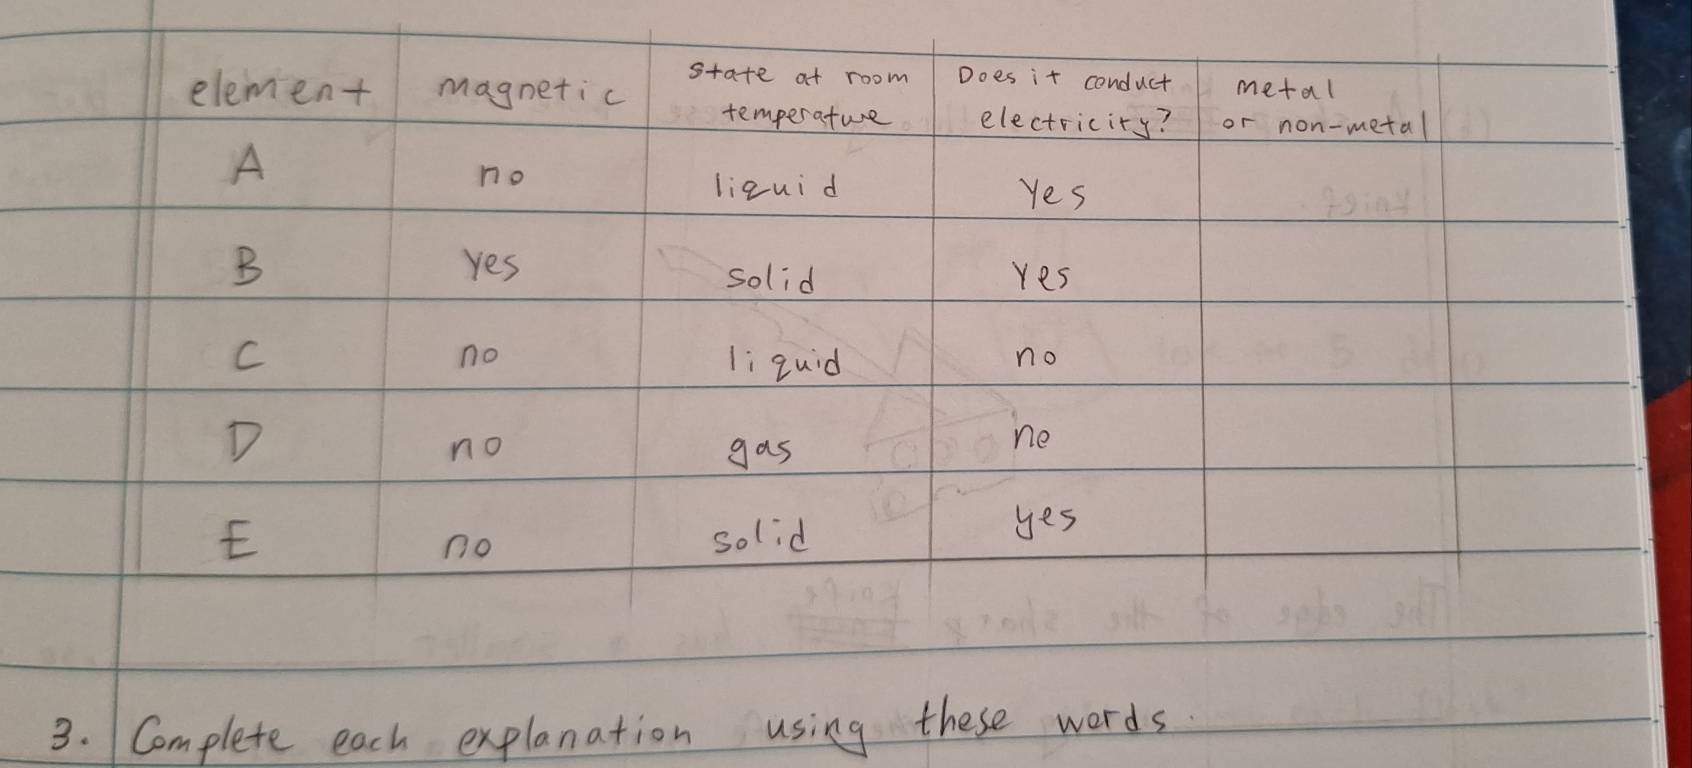 element magnetic State at room temperature Does it conduct electricity? metal or non-metal
A no liquid Yes
B Yes solid Yes
C no liquid no
D no gas no
E no solid yes
3. Complete each explanation using these words.